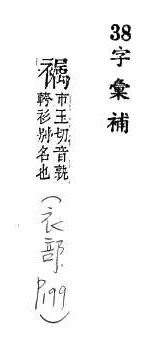 38字彙補
市玉切音孰
衫別名也
(衣部 P199)